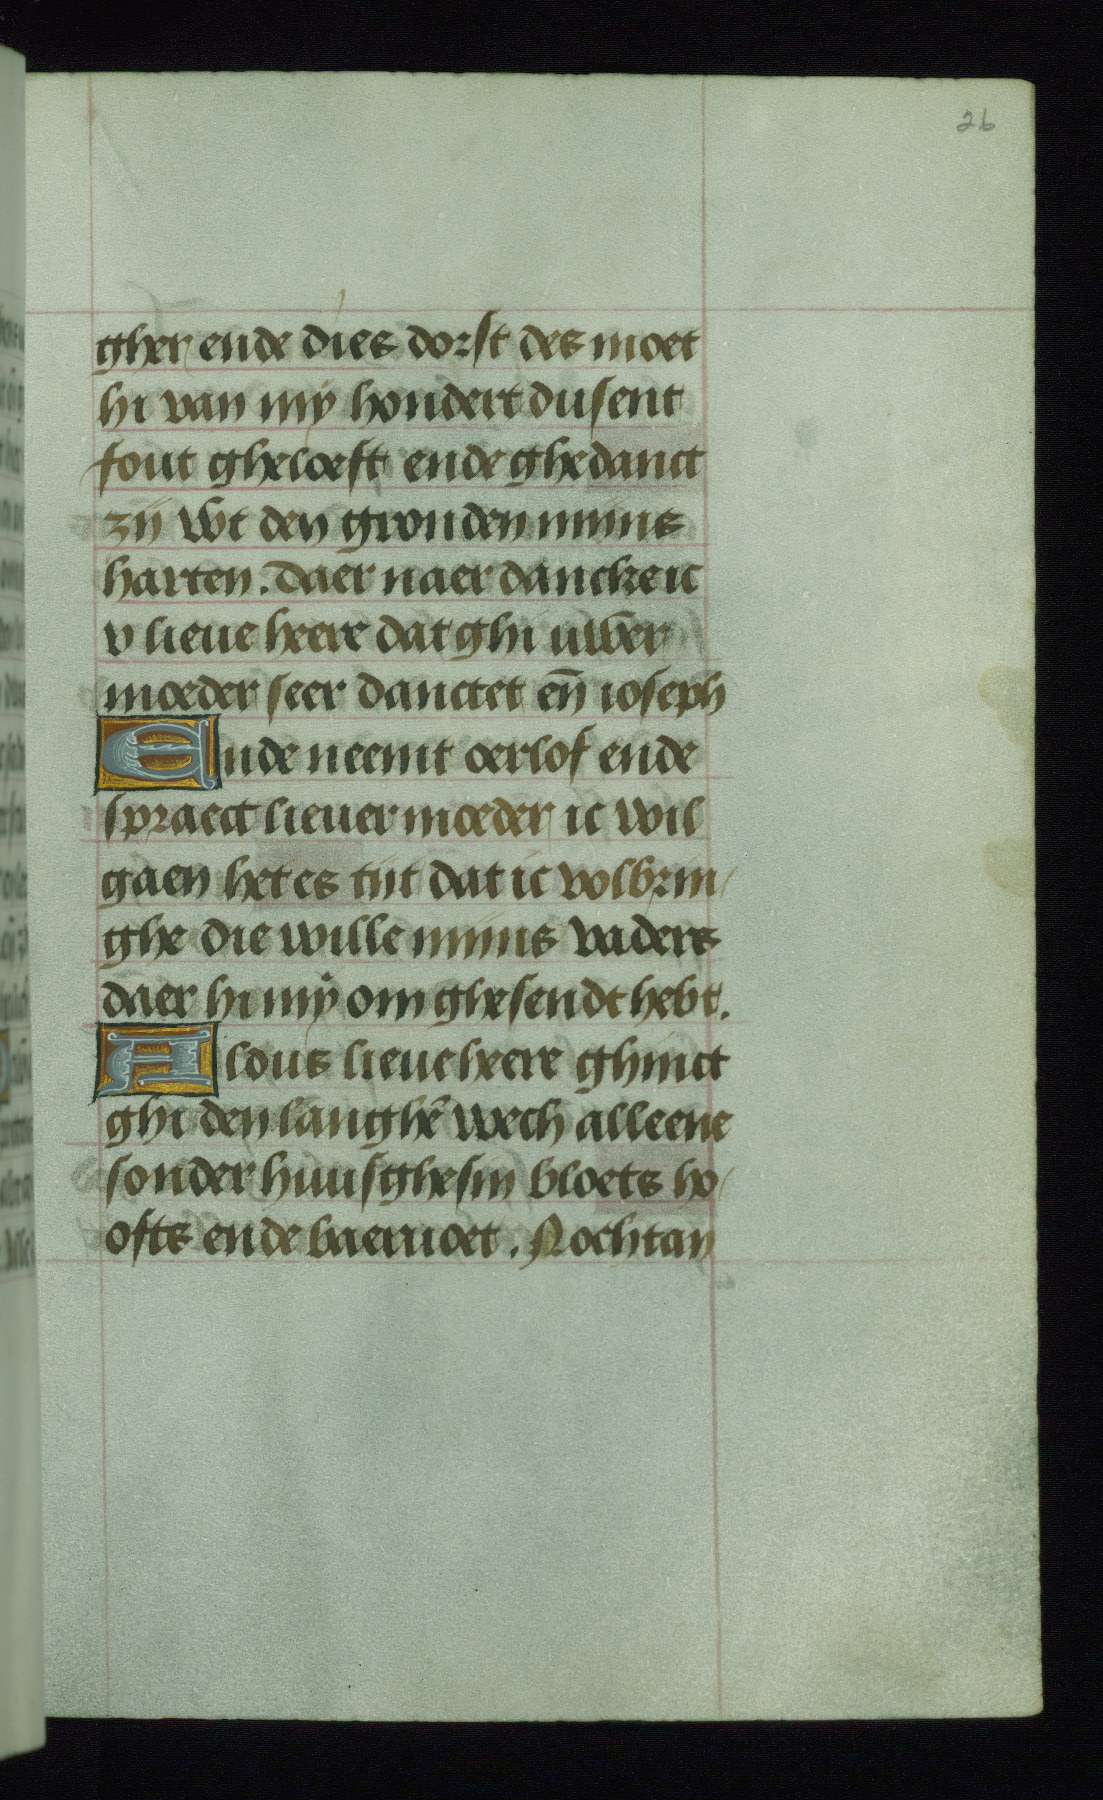 26
gher ende dies dorst des moet
hi van mÿ hondert dusent
fout gheloeft ende ghedanct
zij wt den gronden mijns
harten. Daer naer dancke ic
v lieue heere dat ghi uwer
moeder seer danctet eñ ioseph
Ende neemt oerlof ende
spraect lieuer moeder ic wil
gaen het es tijt dat ic volbrin
ghe die wille mijns vaders
daer hi mÿ om ghesendt hebt.
Aldus lieue heere ghinct
ghi den langhē wech alleene
sonder huusghesin bloets ho
ofts ende baeruoet. Nochtan